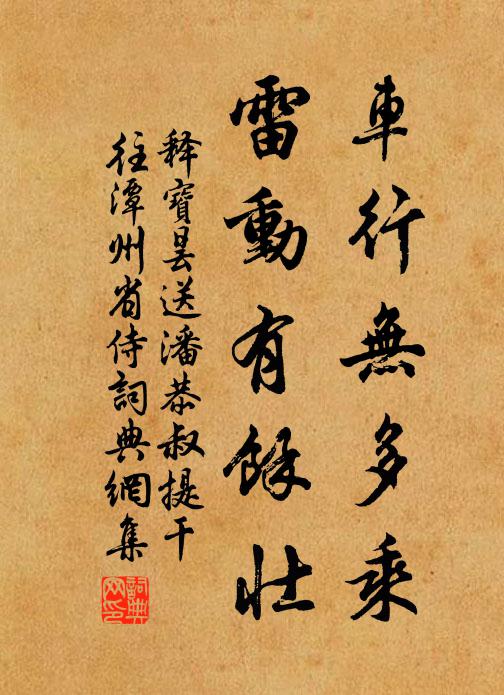 車行無多乘
雷動有餘壯
释寶曇送潘恭叔提干
往潭州省侍詞典網集
詞典網印